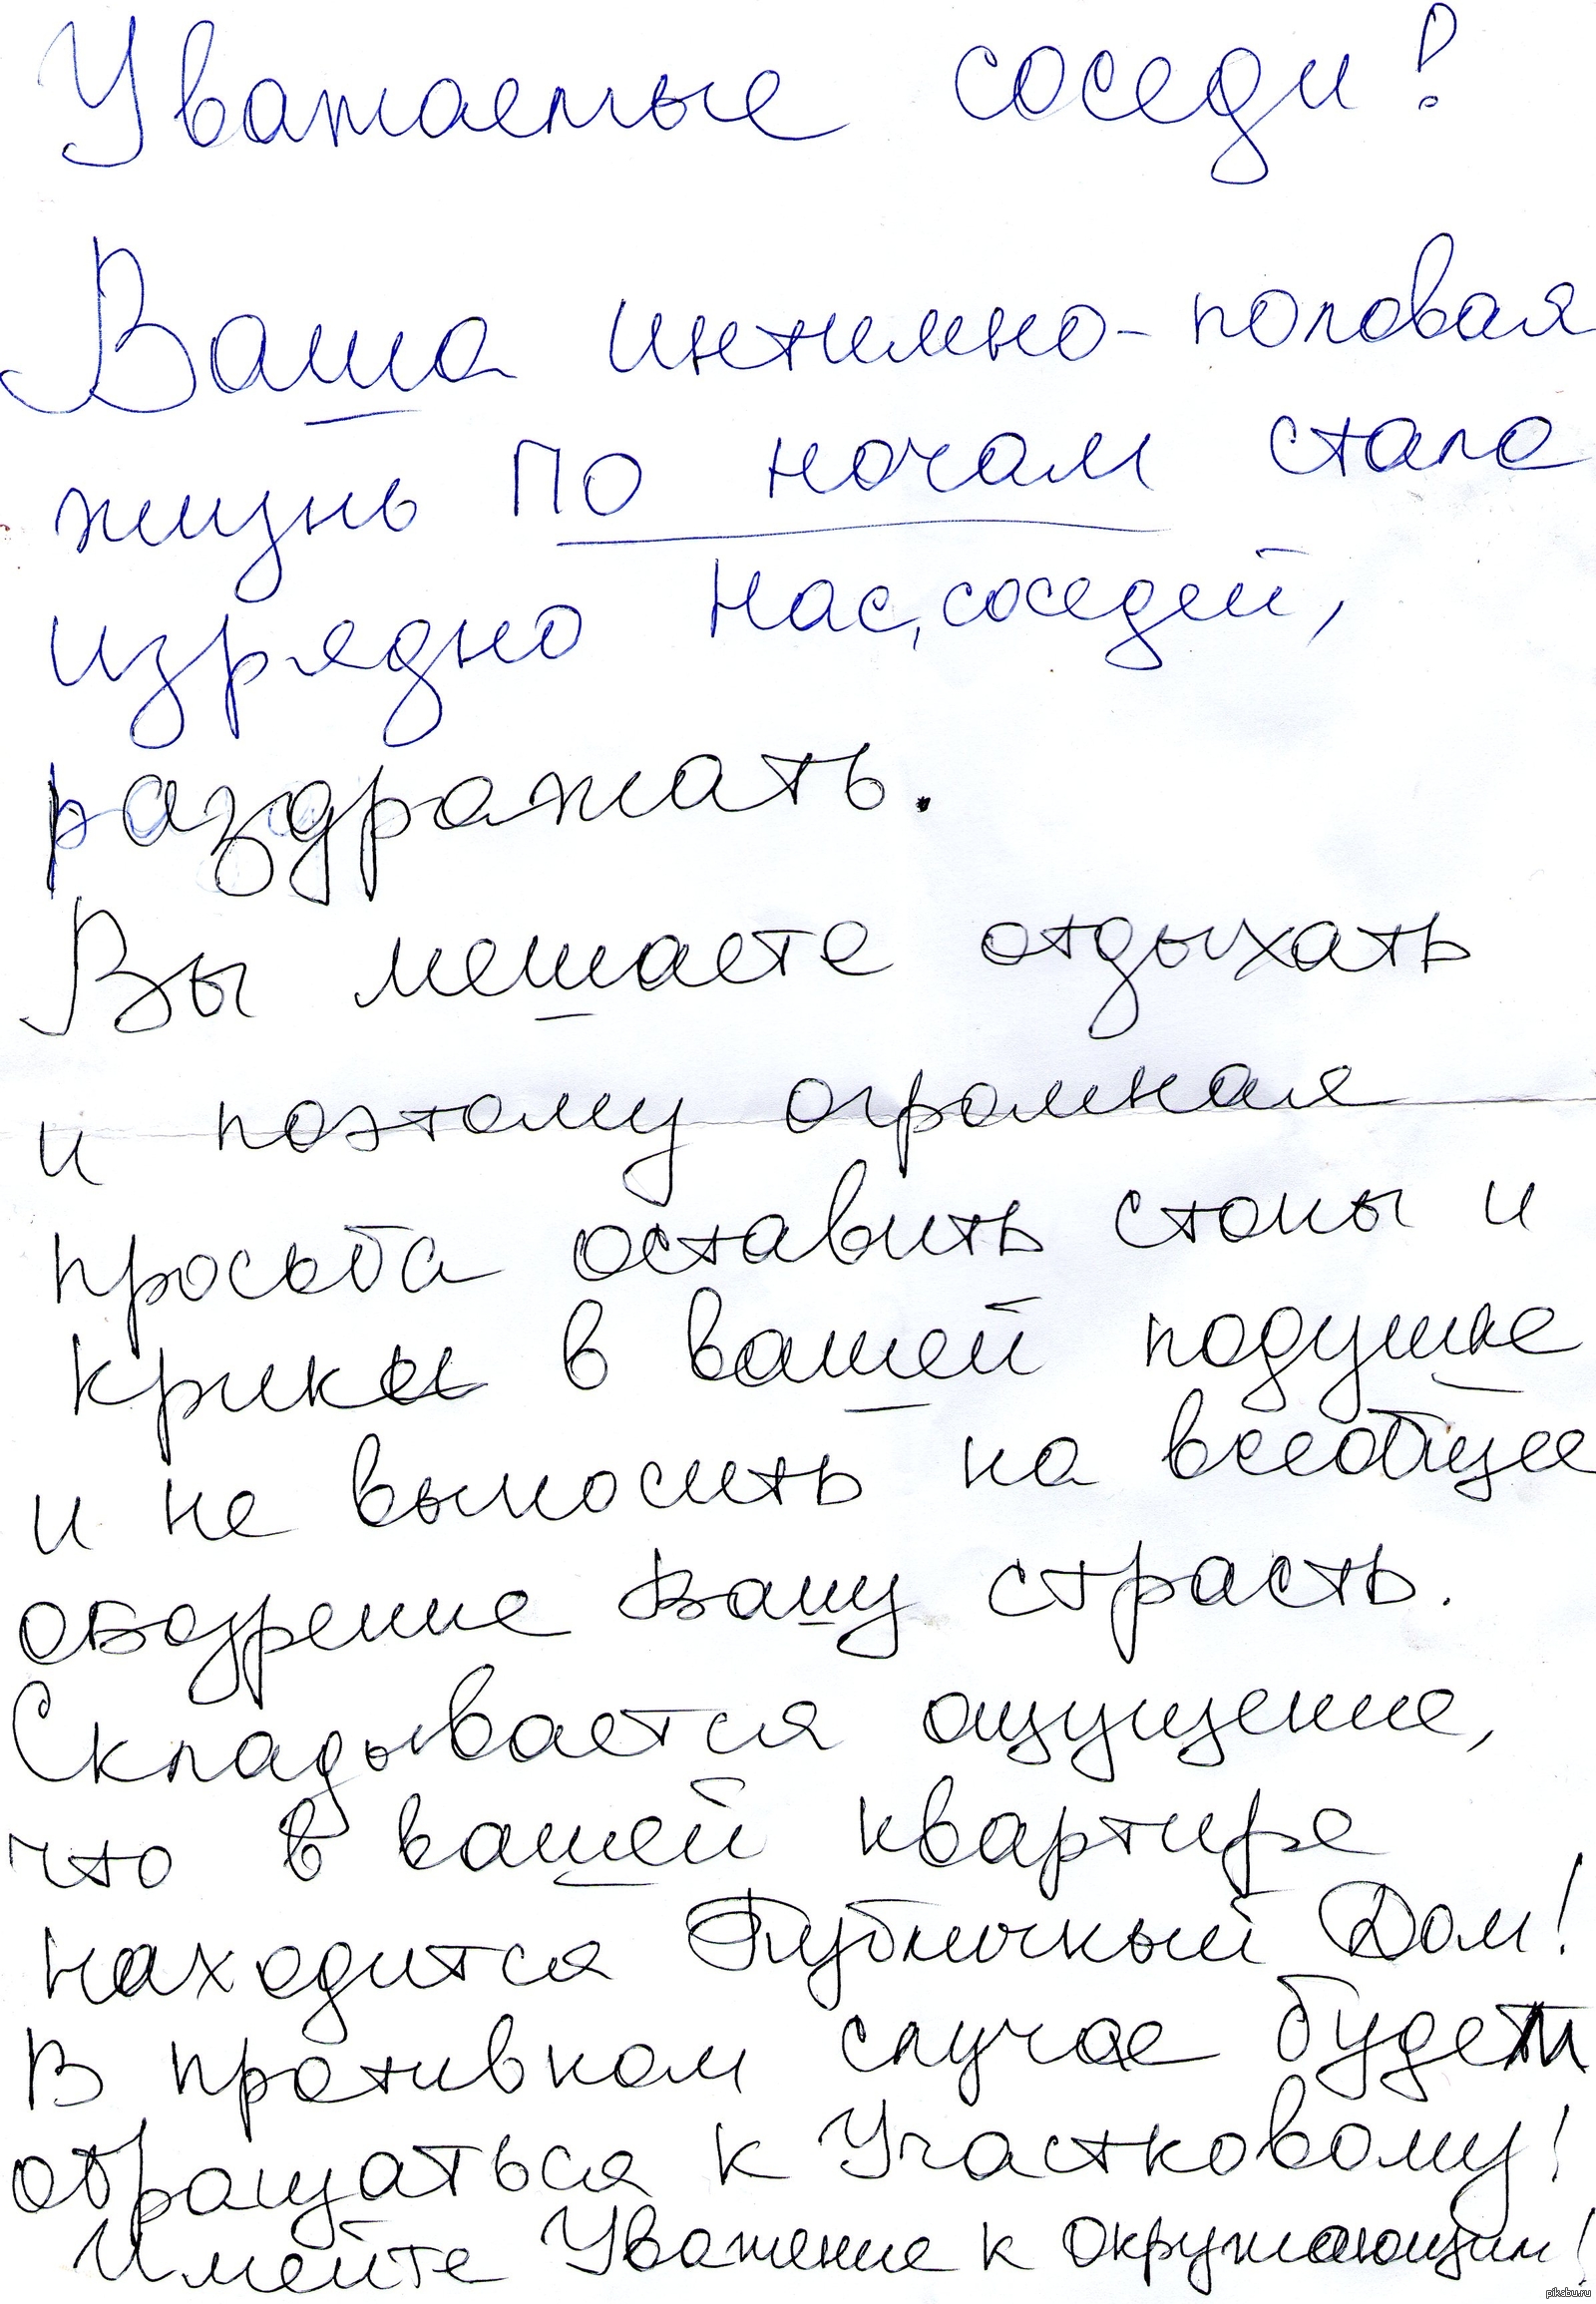 Уважаемые соседи!
Ваша интимно-половая
жизнь по ночам стала
изрядно нас, соседей,
раздражать.
Вы мешаете отдыхать
и поэтому огромная
просьба оставить стоны и
крики в вашей подушке
и не выносить на всеобщее
обозрение Вашу страсть.
Складывается ощущение,
что в вашей квартире
находится Публичный Дом!
В противном случае будем
обращаться к Участковому!
Имейте Уважение к окружающим!
pikabu.ru